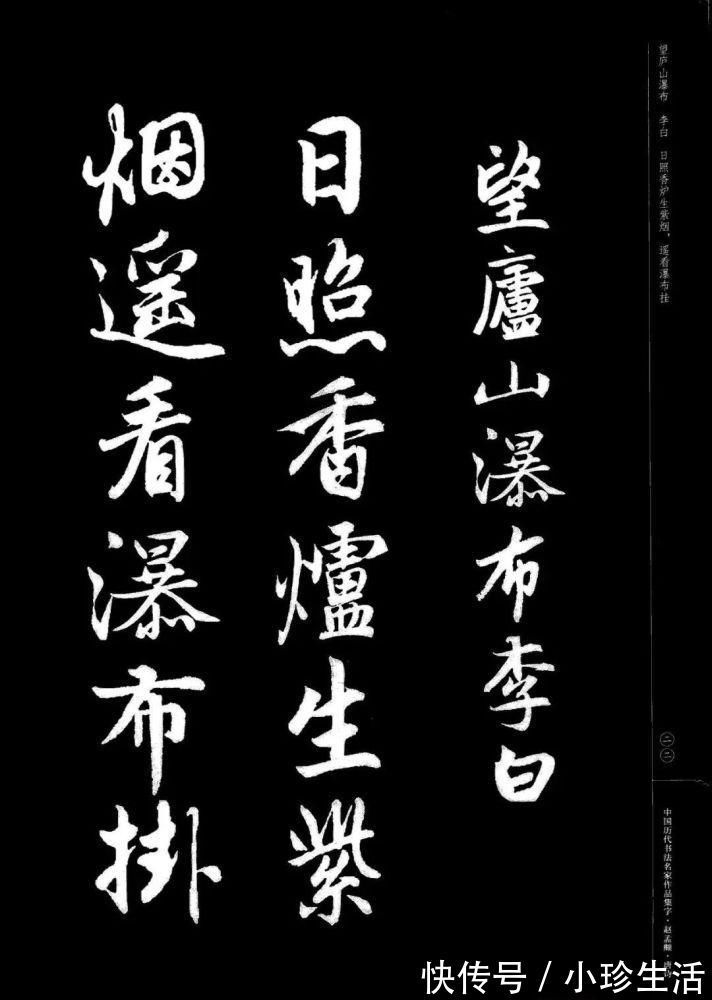 望庐山瀑布 李白 日照香炉生紫烟，遥看瀑布挂
望廬山瀑布李白
日照香爐生紫
烟遥看瀑布掛
二二
中国历代书法名家作品集字·赵孟頫·唐诗
快传号/小珍生活